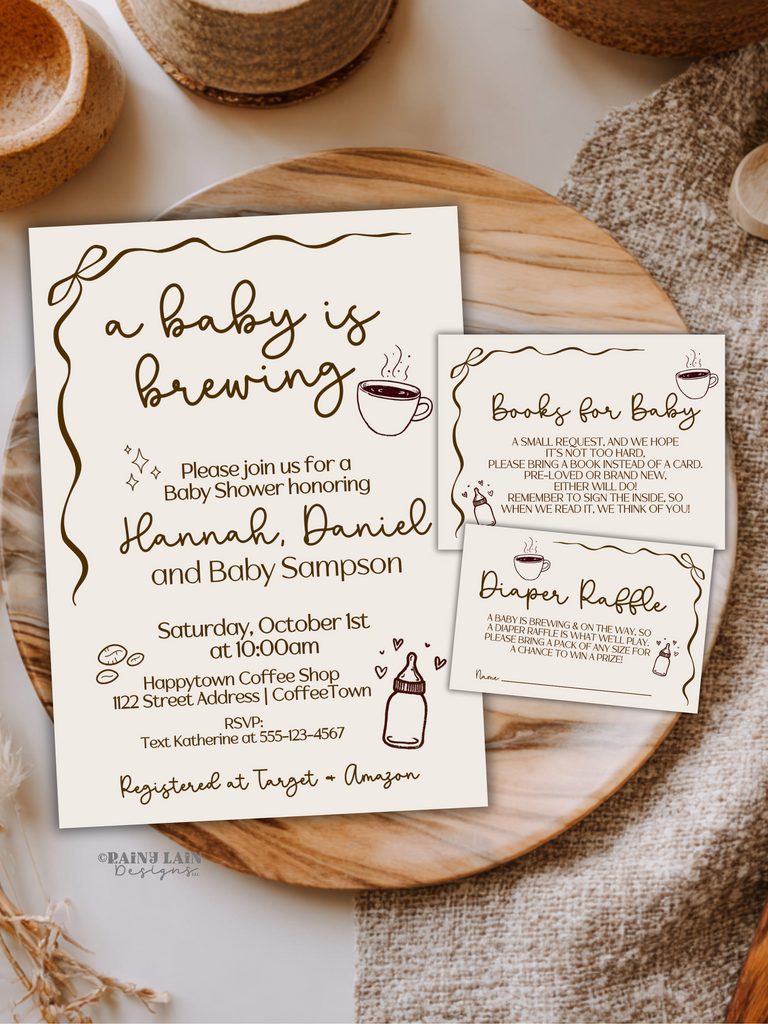 a baby is
brewing
Please join us for a
Baby Shower honoring
Hannah, Daniel
and Baby Sampson
Saturday, October 1st
at 10:00am
Happytown Coffee Shop
1122 Street Address | CoffeeTown
RSVP:
Text Katherine at 555-123-4567
Registered at Target + Amazon
Books for Baby
A SMALL REQUEST, AND WE HOPE
IT'S NOT TOO HARD,
PLEASE BRING A BOOK INSTEAD OF A CARD.
PRE-LOVED OR BRAND NEW,
EITHER WILL DO!
REMEMBER TO SIGN THE INSIDE, SO
WHEN WE READ IT, WE THINK OF YOU!
Diaper Raffle
A BABY IS BREWING & ON THE WAY, SO
A DIAPER RAFFLE IS WHAT WE'LL PLAY.
PLEASE BRING A PACK OF ANY SIZE FOR
A CHANCE TO WIN A PRIZE!
Name:
©RAINY LAIN
Designs LLC